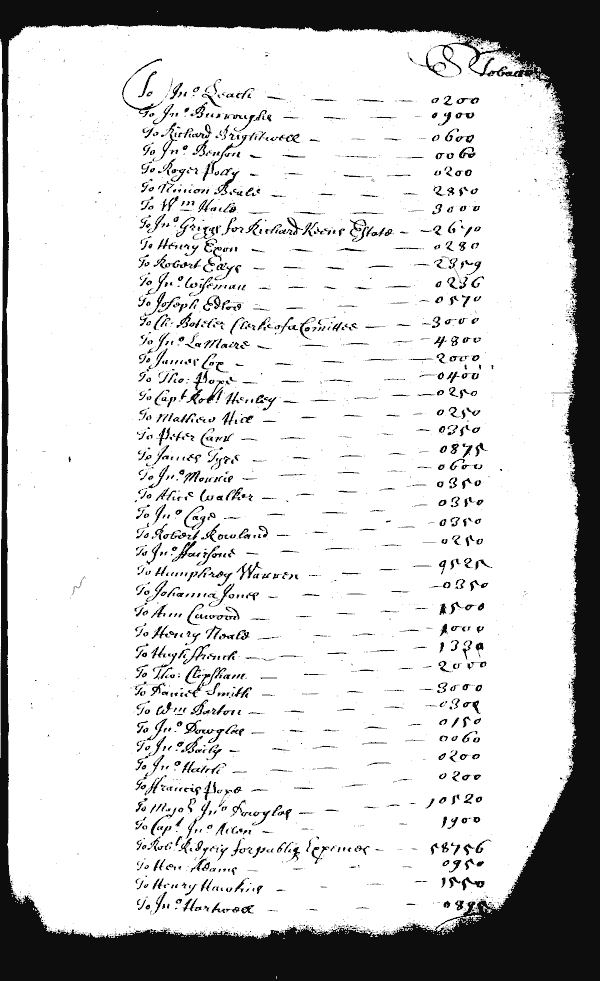 Tobacco
To Jno Leach — 0200
To Jno Burroughs — 0900
To Richard Brightwell — 0600
To Jno Benson — 0060
To Roger Polly — 0200
To Ninion Beale — 2850
To Wm Haild — 3000
To Jno Griggs for Richard Keens Estate — 2610
To Henry Exon — 0280
To Robert Ellys — 2359
To Jno Wiseman — 0236
To Joseph Edloe — 0570
To Ch: Boteler Clerke of a Comittee — 3000
To Jno LaMaire — 4800
To James Cox — 2000
To Tho: Pope — 0400
To Capt Robt Henley — 0250
To Mathew Hill — 0250
To Peter Carr — 0350
To James Tyre — 0875
To Jno Morris — 0600
To Alice Walker — 0350
To Jno Cage — 0350
To Robert Rowland — 0350
To Jno ffairfone — 0250
To Humphrey Warren — 9525
To Johanna Jones — 0350
To Ann Cawood — 1500
To Henry Neale — 1000
To Hugh ffrench — 1330
To Tho: Clipsham — 2000
To Daniel Smith — 3000
To Wm Barton — 0300
To Jno Dowglas — 0150
To Jno Baily — 0060
To Jno Hatch — 0200
To ffrancis Pope — 0200
To Major Jno Dowglas — 10520
To Capt Jno Allen — 1900
To Robt Ridgely for publiq Expences — 58756
To Hen: Adams — 0950
To Henry Hawkins — 1550
To Jno Hartwell — 0895